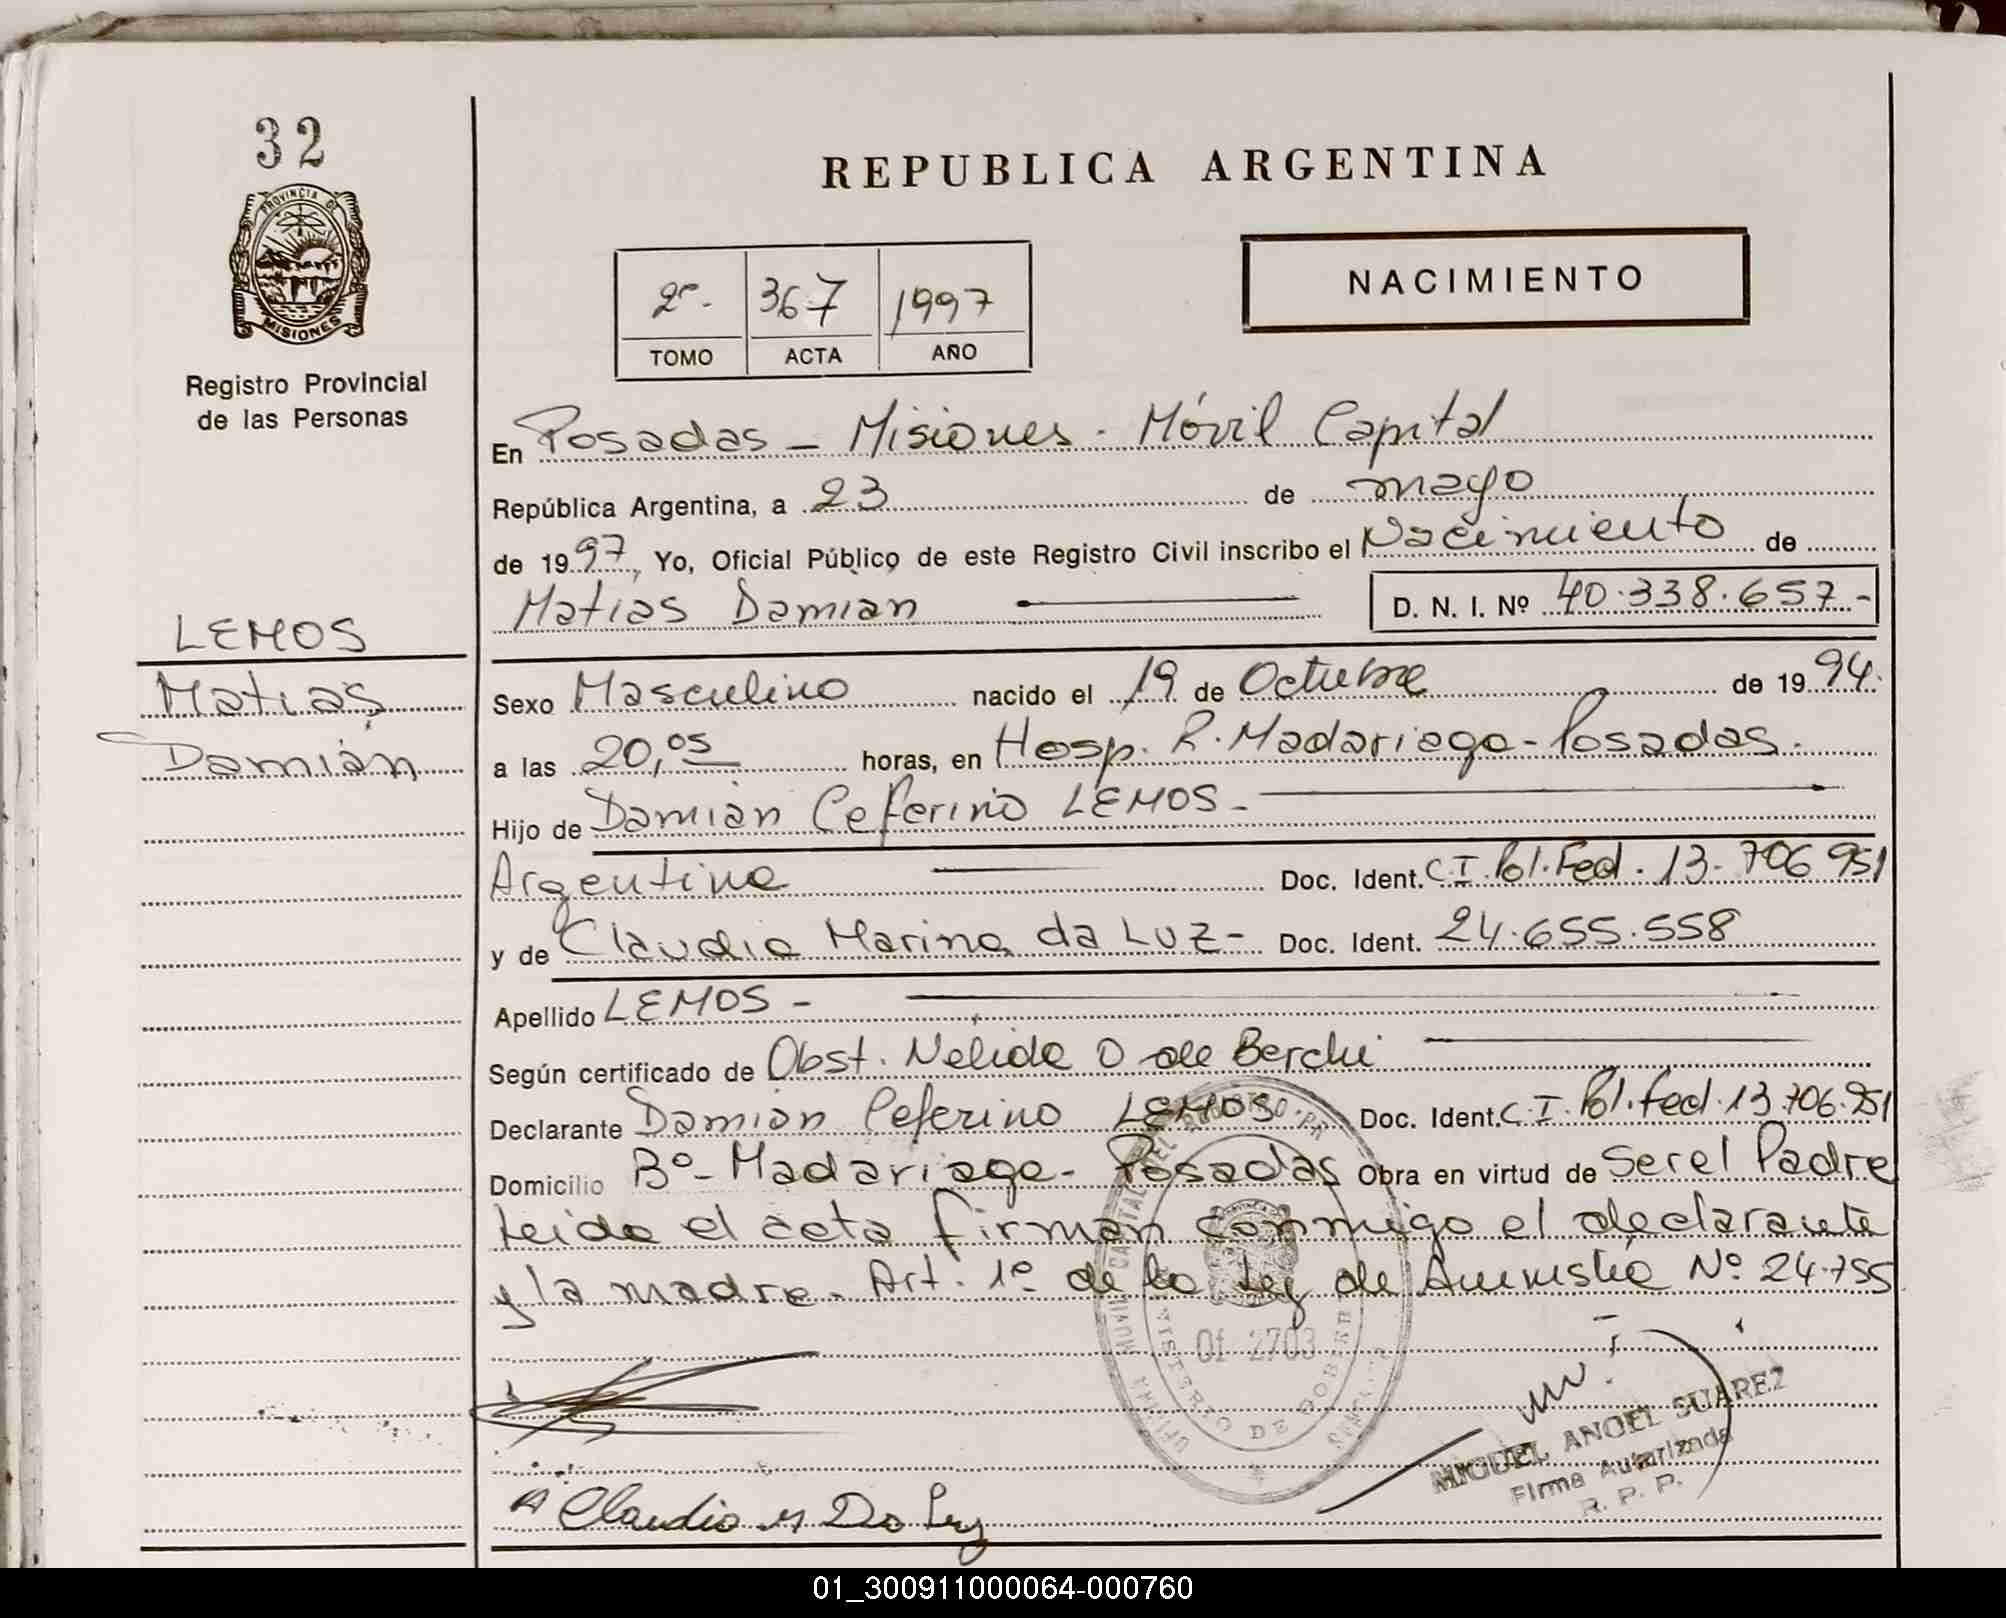 32
PROVINCIA DE
MISIONES
Registro Provincial
de las Personas
REPUBLICA ARGENTINA
NACIMIENTO
2º- 367 1997
TOMO ACTA AÑO
En Posadas - Misiones - Móvil Capital
República Argentina, a 23 de mayo
de 1997, Yo, Oficial Público de este Registro Civil inscribo el Nacimiento de
Matias Damian D. N. I. Nº 40.338.657-
LEMOS
Matias
Damián
Sexo Masculino nacido el 19 de Octubre de 1994.
a las 20,05 horas, en Hosp. R. Madariaga - Posadas.
Hijo de Damián Ceferino LEMOS -
Argentina Doc. Ident. C.I. Pol. Fed. 13.706 951
y de Claudia Marina da LUZ - Doc. Ident. 24.655.558
Apellido LEMOS -
Según certificado de Obst. Nelida O de Berchi
Declarante Damián Ceferino LEMOS Doc. Ident. C.I. Pol. Fed. 13.706.951
Domicilio Bº- Madariaga - Posadas Obra en virtud de Ser el Padre
leida el acta firman conmigo el declarante
y la madre. Art. 1º de la Ley de Amnistia Nº 24.755
OFICINA MOVIL CAPITAL DEL REGISTRO
MINISTERIO DE GOBIERNO
Of 2703
MIGUEL ANGEL SUAREZ
Firma Autorizada
R. P. P.
Claudia M Da Luz
01_300911000064-000760